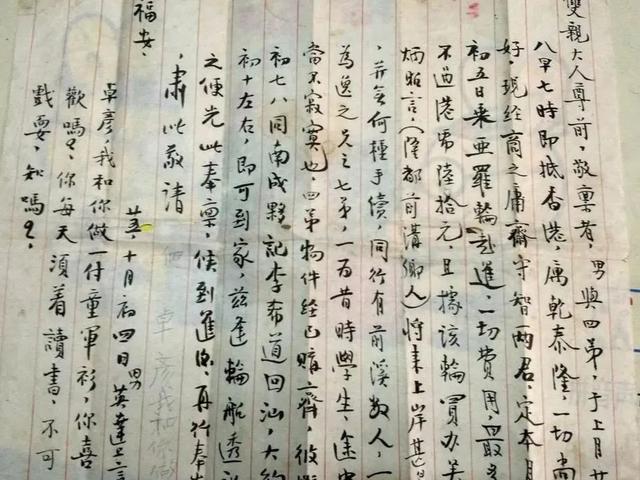 雙親大人尊前，敬稟者，男與四弟，于上月廿
八早七時即抵香港，寓乾泰隆，一切尚
好，現經商之庸齋守智兩君，定本月
初五日乘亜羅輪赴暹，一切費用最多
不過港幣陸拾元，且據該輪買办关
炳昭言，（隆都前溝鄉人）將来上岸甚
，並無何種手續，同行有前溪数人，一
為逸之兄之七弟，一為昔時學生，途中
當不寂寞也，四弟物件经已購齊，彼
初七八同南成夥記李希道回汕，大約
初十左右，即可到家，兹逢輪船透
之便先此奉稟，俟到暹後，再行奉
，肅此敬請
福安，
十月初四日男英達上言
卓彦，我和你做一付童軍衫，你喜
歡嗎？你每天須着讀書，不可
戲耍，知嗎？，
卓彦我和你